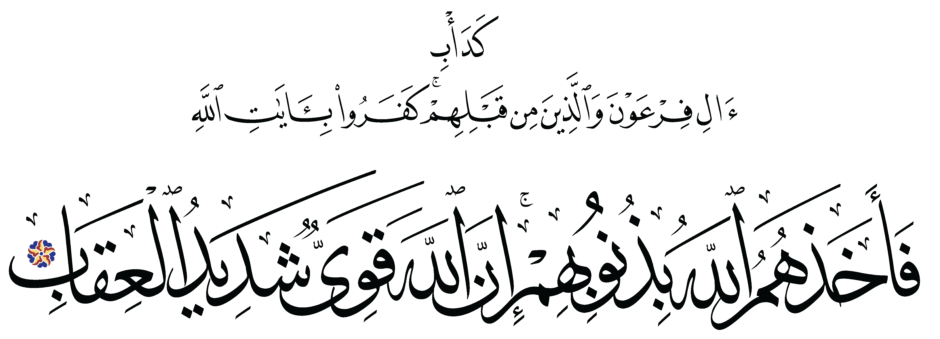 كَدَأْبِ
ءَالِ فِرْعَوْنَ وَٱلَّذِينَ مِن قَبْلِهِمْ ۚ كَفَرُوا۟ بِـَٔايَـٰتِ ٱللَّهِ
فَأَخَذَهُمُ ٱللَّهُ بِذُنُوبِهِمْ ۚ إِنَّ ٱللَّهَ قَوِىٌّ شَدِيدُ ٱلْعِقَابِ